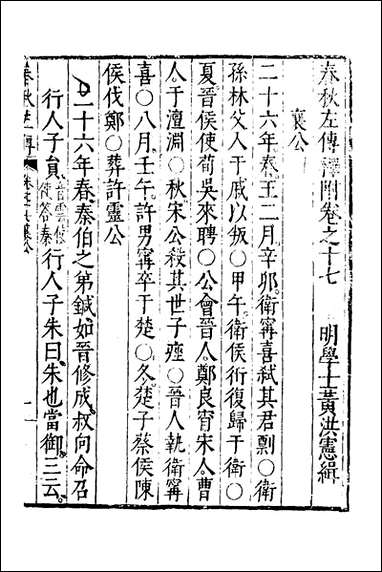 春秋左傳釋附卷之十七　明學士黃洪憲緝
襄公
二十六年春王二月辛卯衛寗喜弑其君剽○衛
孫林父入于戚以叛○甲午衛侯衎復歸于衛○
夏晉侯使荀吳來聘○公會晉人鄭良霄宋人曹
人于澶淵○秋宋公殺其世子痤○晉人執衛寗
喜○八月壬午許男寗卒于楚○冬楚子蔡侯陳
侯伐鄭○葬許靈公
二十六年春秦伯之弟鍼如晉修成叔向命召
行人子員行人子朱曰朱也當御三云